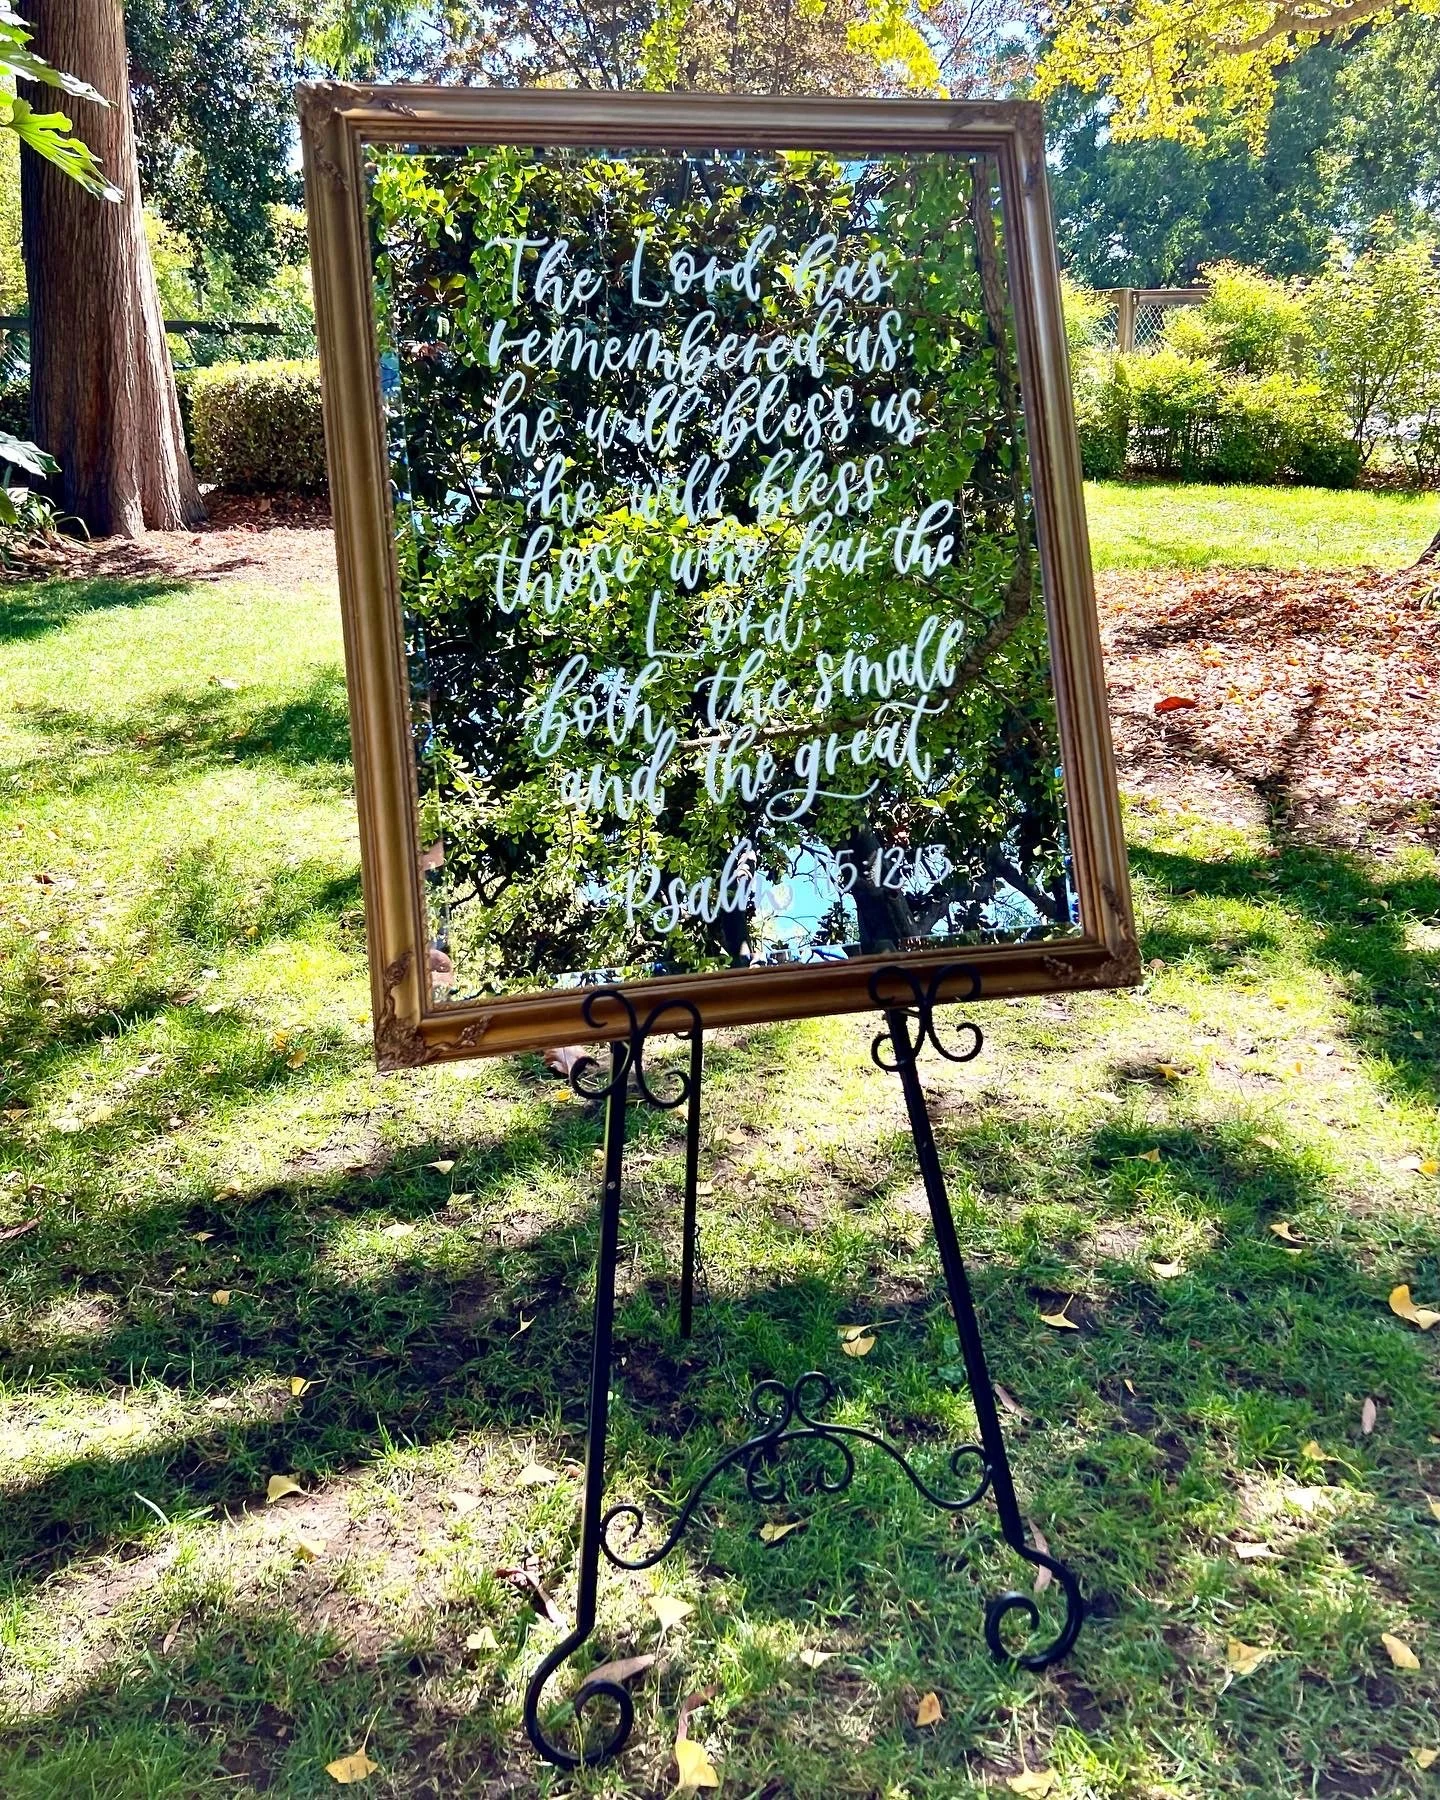 The Lord has
remembered us;
he will bless us
he will bless
those who fear the
Lord,
both the small
and the great.
Psalm 115:12-13